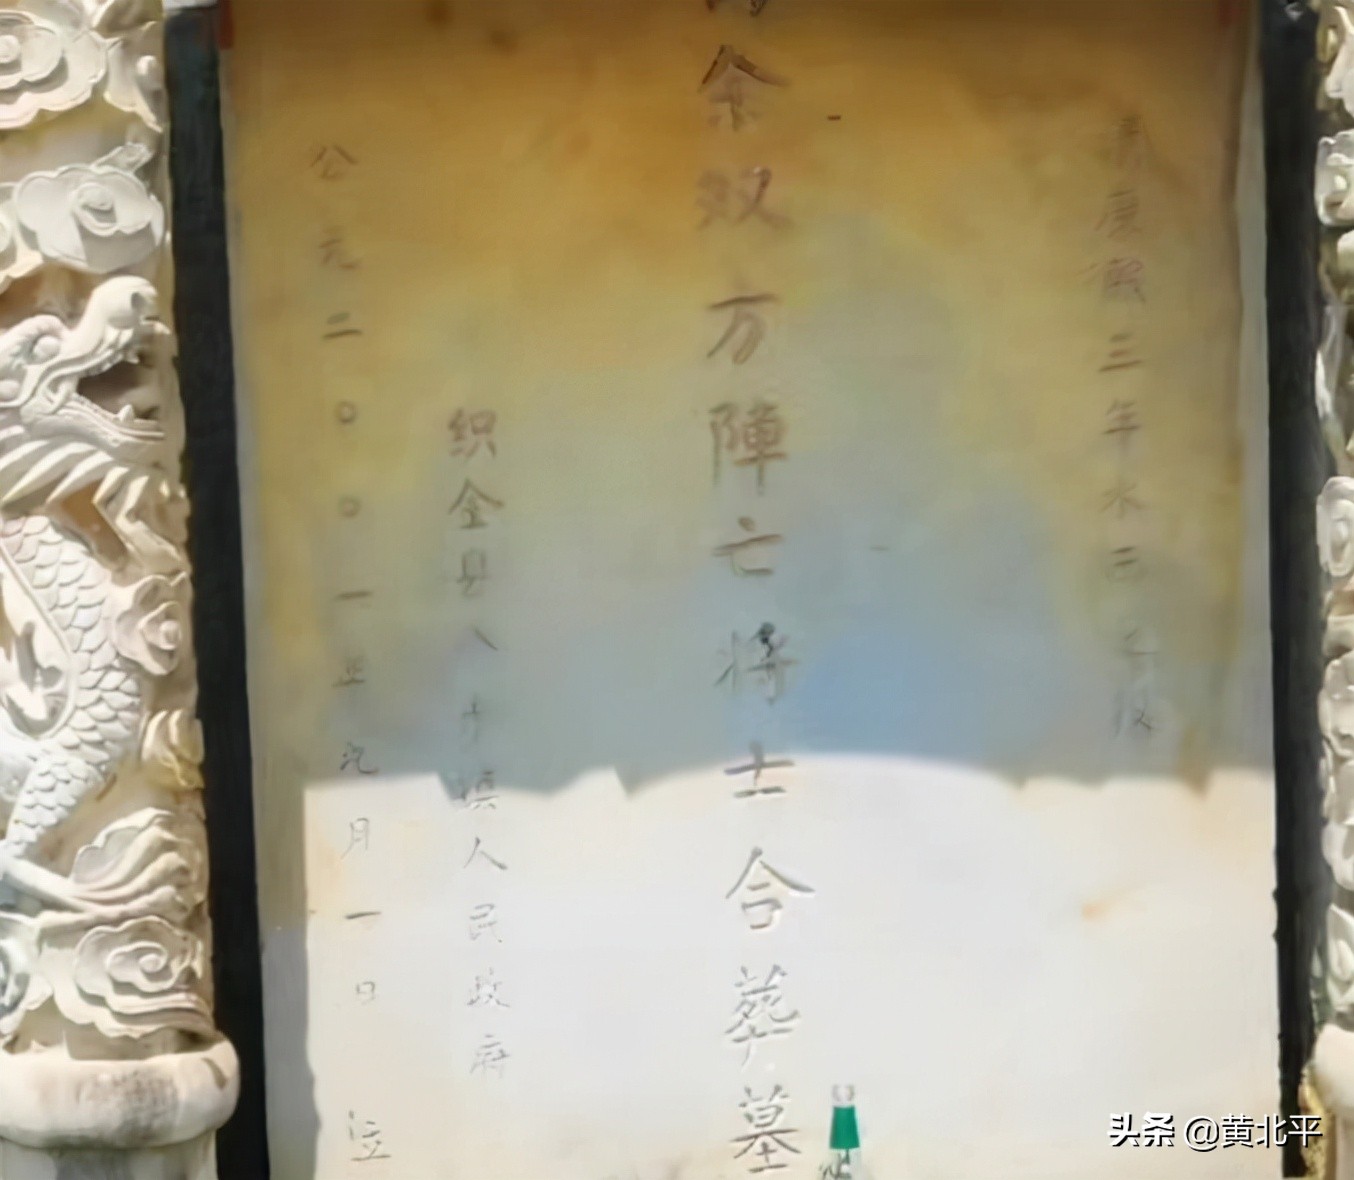 清康熙三年水西之役
余双方陣亡将士合葬墓
织金县八步镇人民政府
公元二〇〇一年九月一日 立
头条 @黄北平